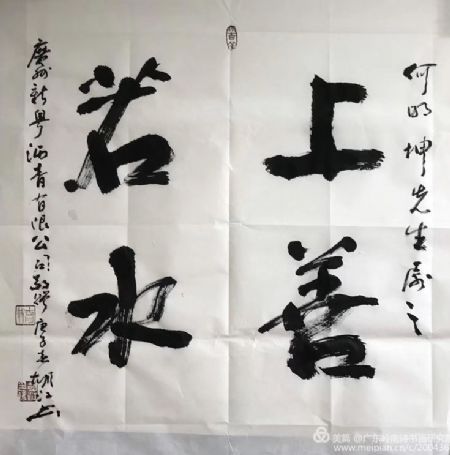 何明坤先生属之
上善
若水
广州新粤沥青有限公司敬赠庚子春胡江
美篇 @广东岭南诗书画研究院
www.meipian.cn/c/200436